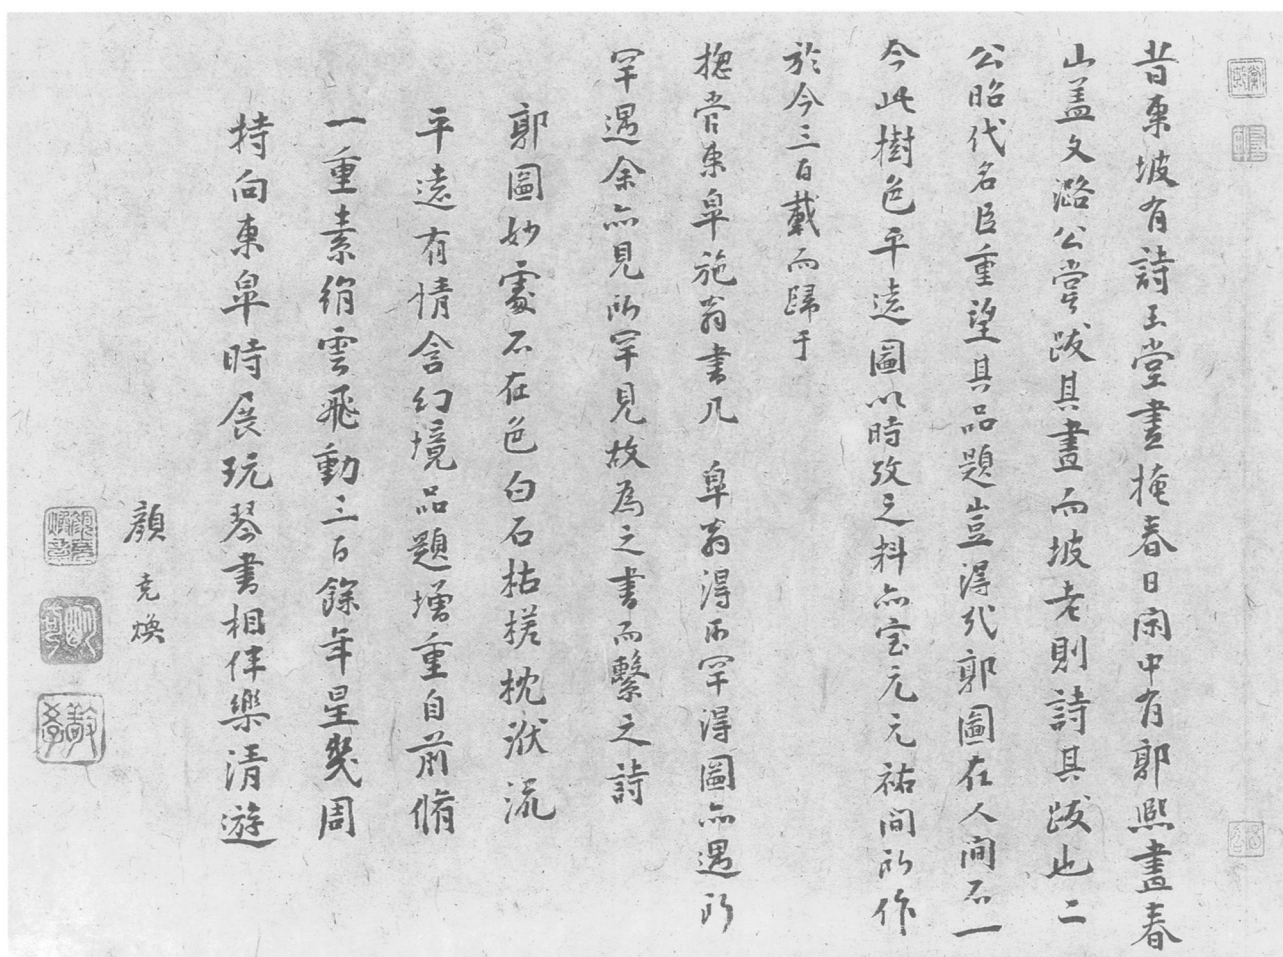 昔東坡有詩玉堂晝掩春日閑中有郭熙畫春
山盖文潞公嘗跋其畫而坡老則詩其跋也二
公昭代名臣重望其品題豈得代郭圖在人間不一
今此樹色平遠圖以時攷之料亦宝元元祐間所作
於今三百載而歸于
揔管東皐施翁書几 皐翁得所罕得圖亦遇所
罕遇余亦見所罕見故為之書而繫之詩
郭圖妙處不在色白石枯槎枕洑流
平遠有情含幻境品題增重自前脩
一重素絹雲飛動三百餘年星幾周
持向東皐時展玩琴書相伴樂清遊
顏 克煥